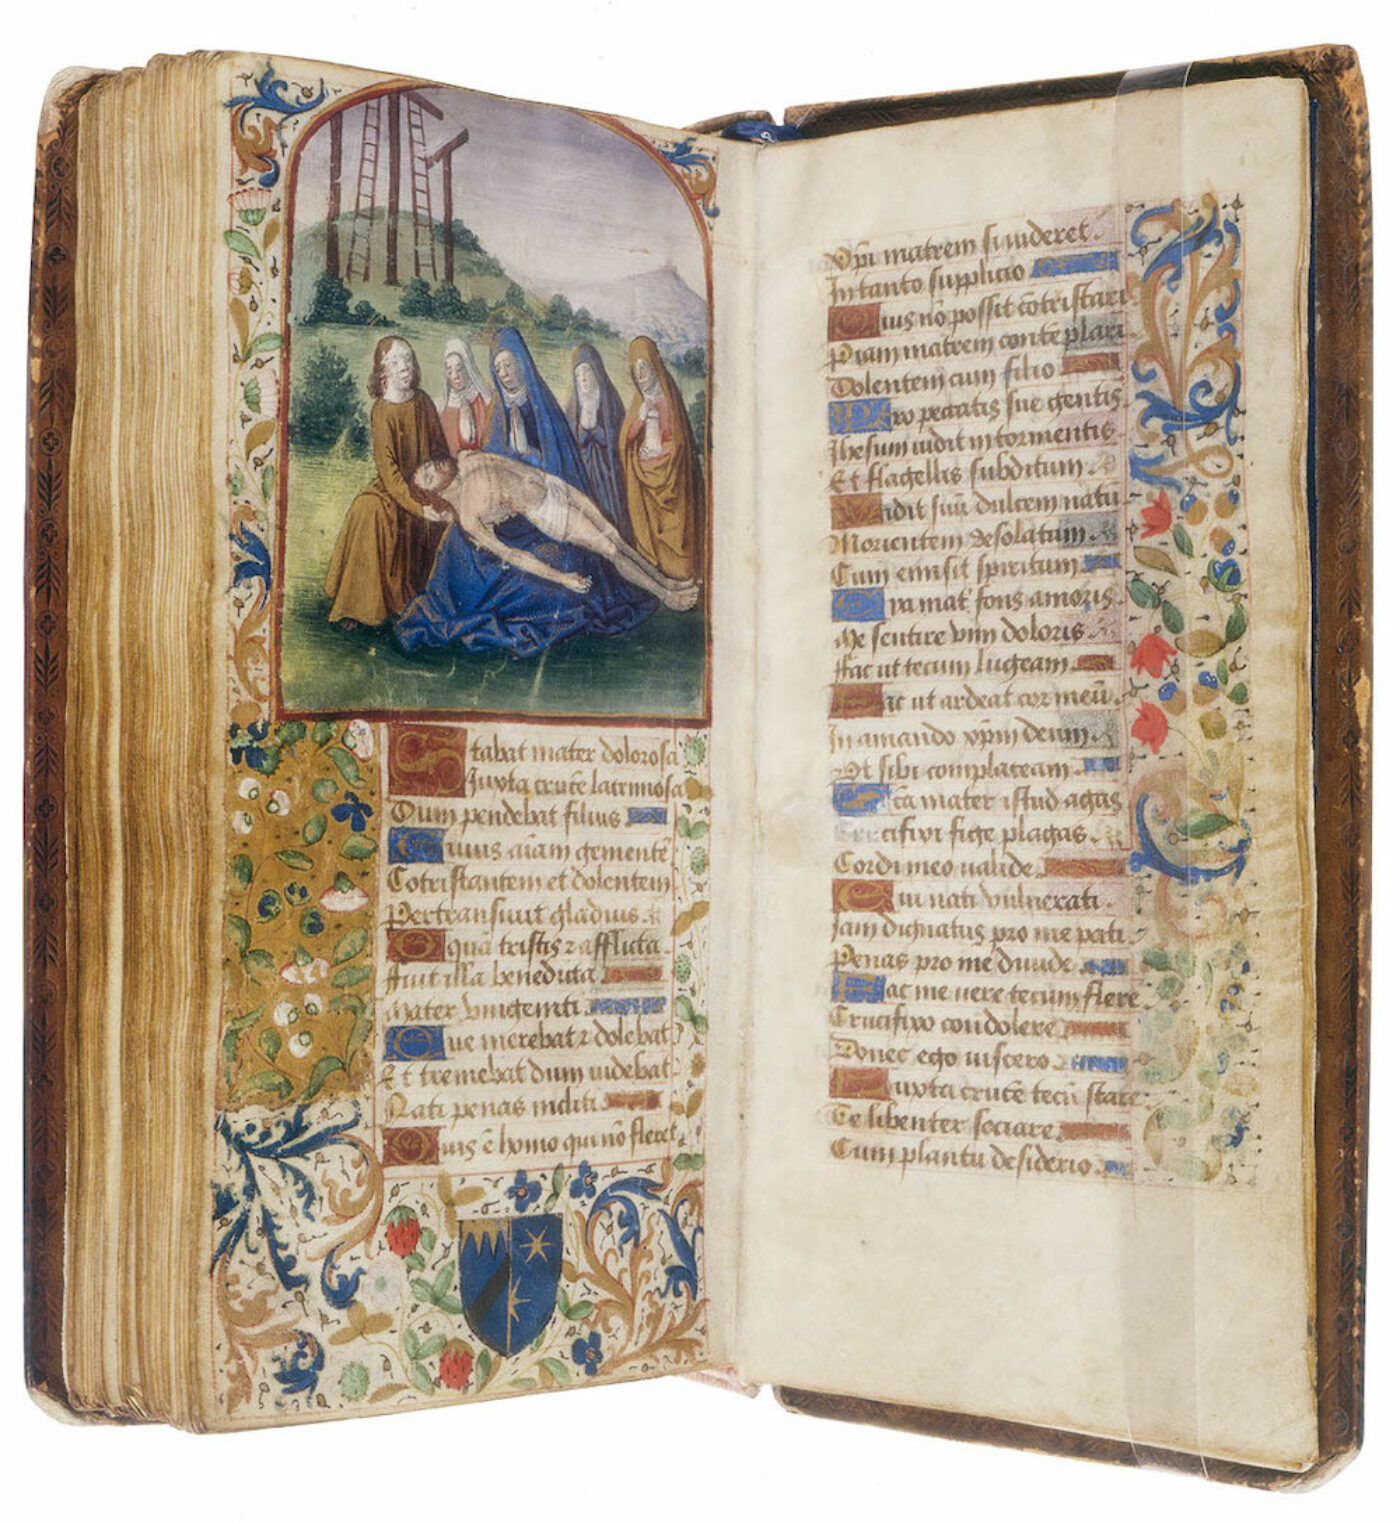 Stabat mater dolorosa
Juxta crucē lacrimosa
Dum pendebat filius
Cuius aīam gementē
Cōtristantem et dolentem
Pertransiuit gladius
O quā tristis ⁊ afflicta
ffuit illa benedicta
Mater vnigeniti
Que merebat ⁊ dolebat
Et tremebat dum uidebat
Nati penas incliti
Quis ē homo qui nō fleret
Xp̄i matrem si uideret
In tanto supplicio
Quis nō possit cōtristari
Piam matrem contēplari
Dolentem cum filio
Pro peccatis sue gentis
Jhesum uidit in tormentis
Et flagellis subditum
Vidit suū dulcem natū
Morientem desolatum
Cum emisit spiritum
Eya mat̄ fons amoris
Me sentire vim doloris
ffac ut tecum lugeam
Fac ut ardeat cor meū
In amando xp̄m deum
Vt sibi complaceam
Sc̄a mater istud agas
Crucifixi fige plagas
Cordi meo ualide
Tui nati vulnerati
Jam dignatus pro me pati
Penas pro me diuide
Fac me uere tecum flere
Crucifixo condolere
Donec ego uixero
Juxta crucē tecū stare
Te libenter sociare
Cum planctu desiderio